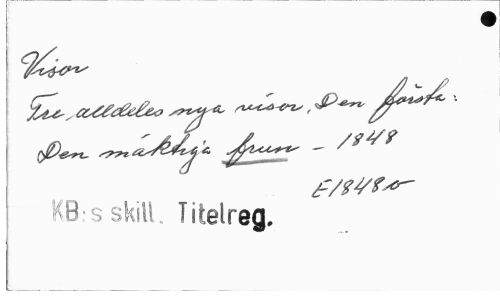 Visor
Tre alldeles nya visor. Den första:
Den mäktiga frun - 1848
E1848v
KB:s skill. Titelreg.